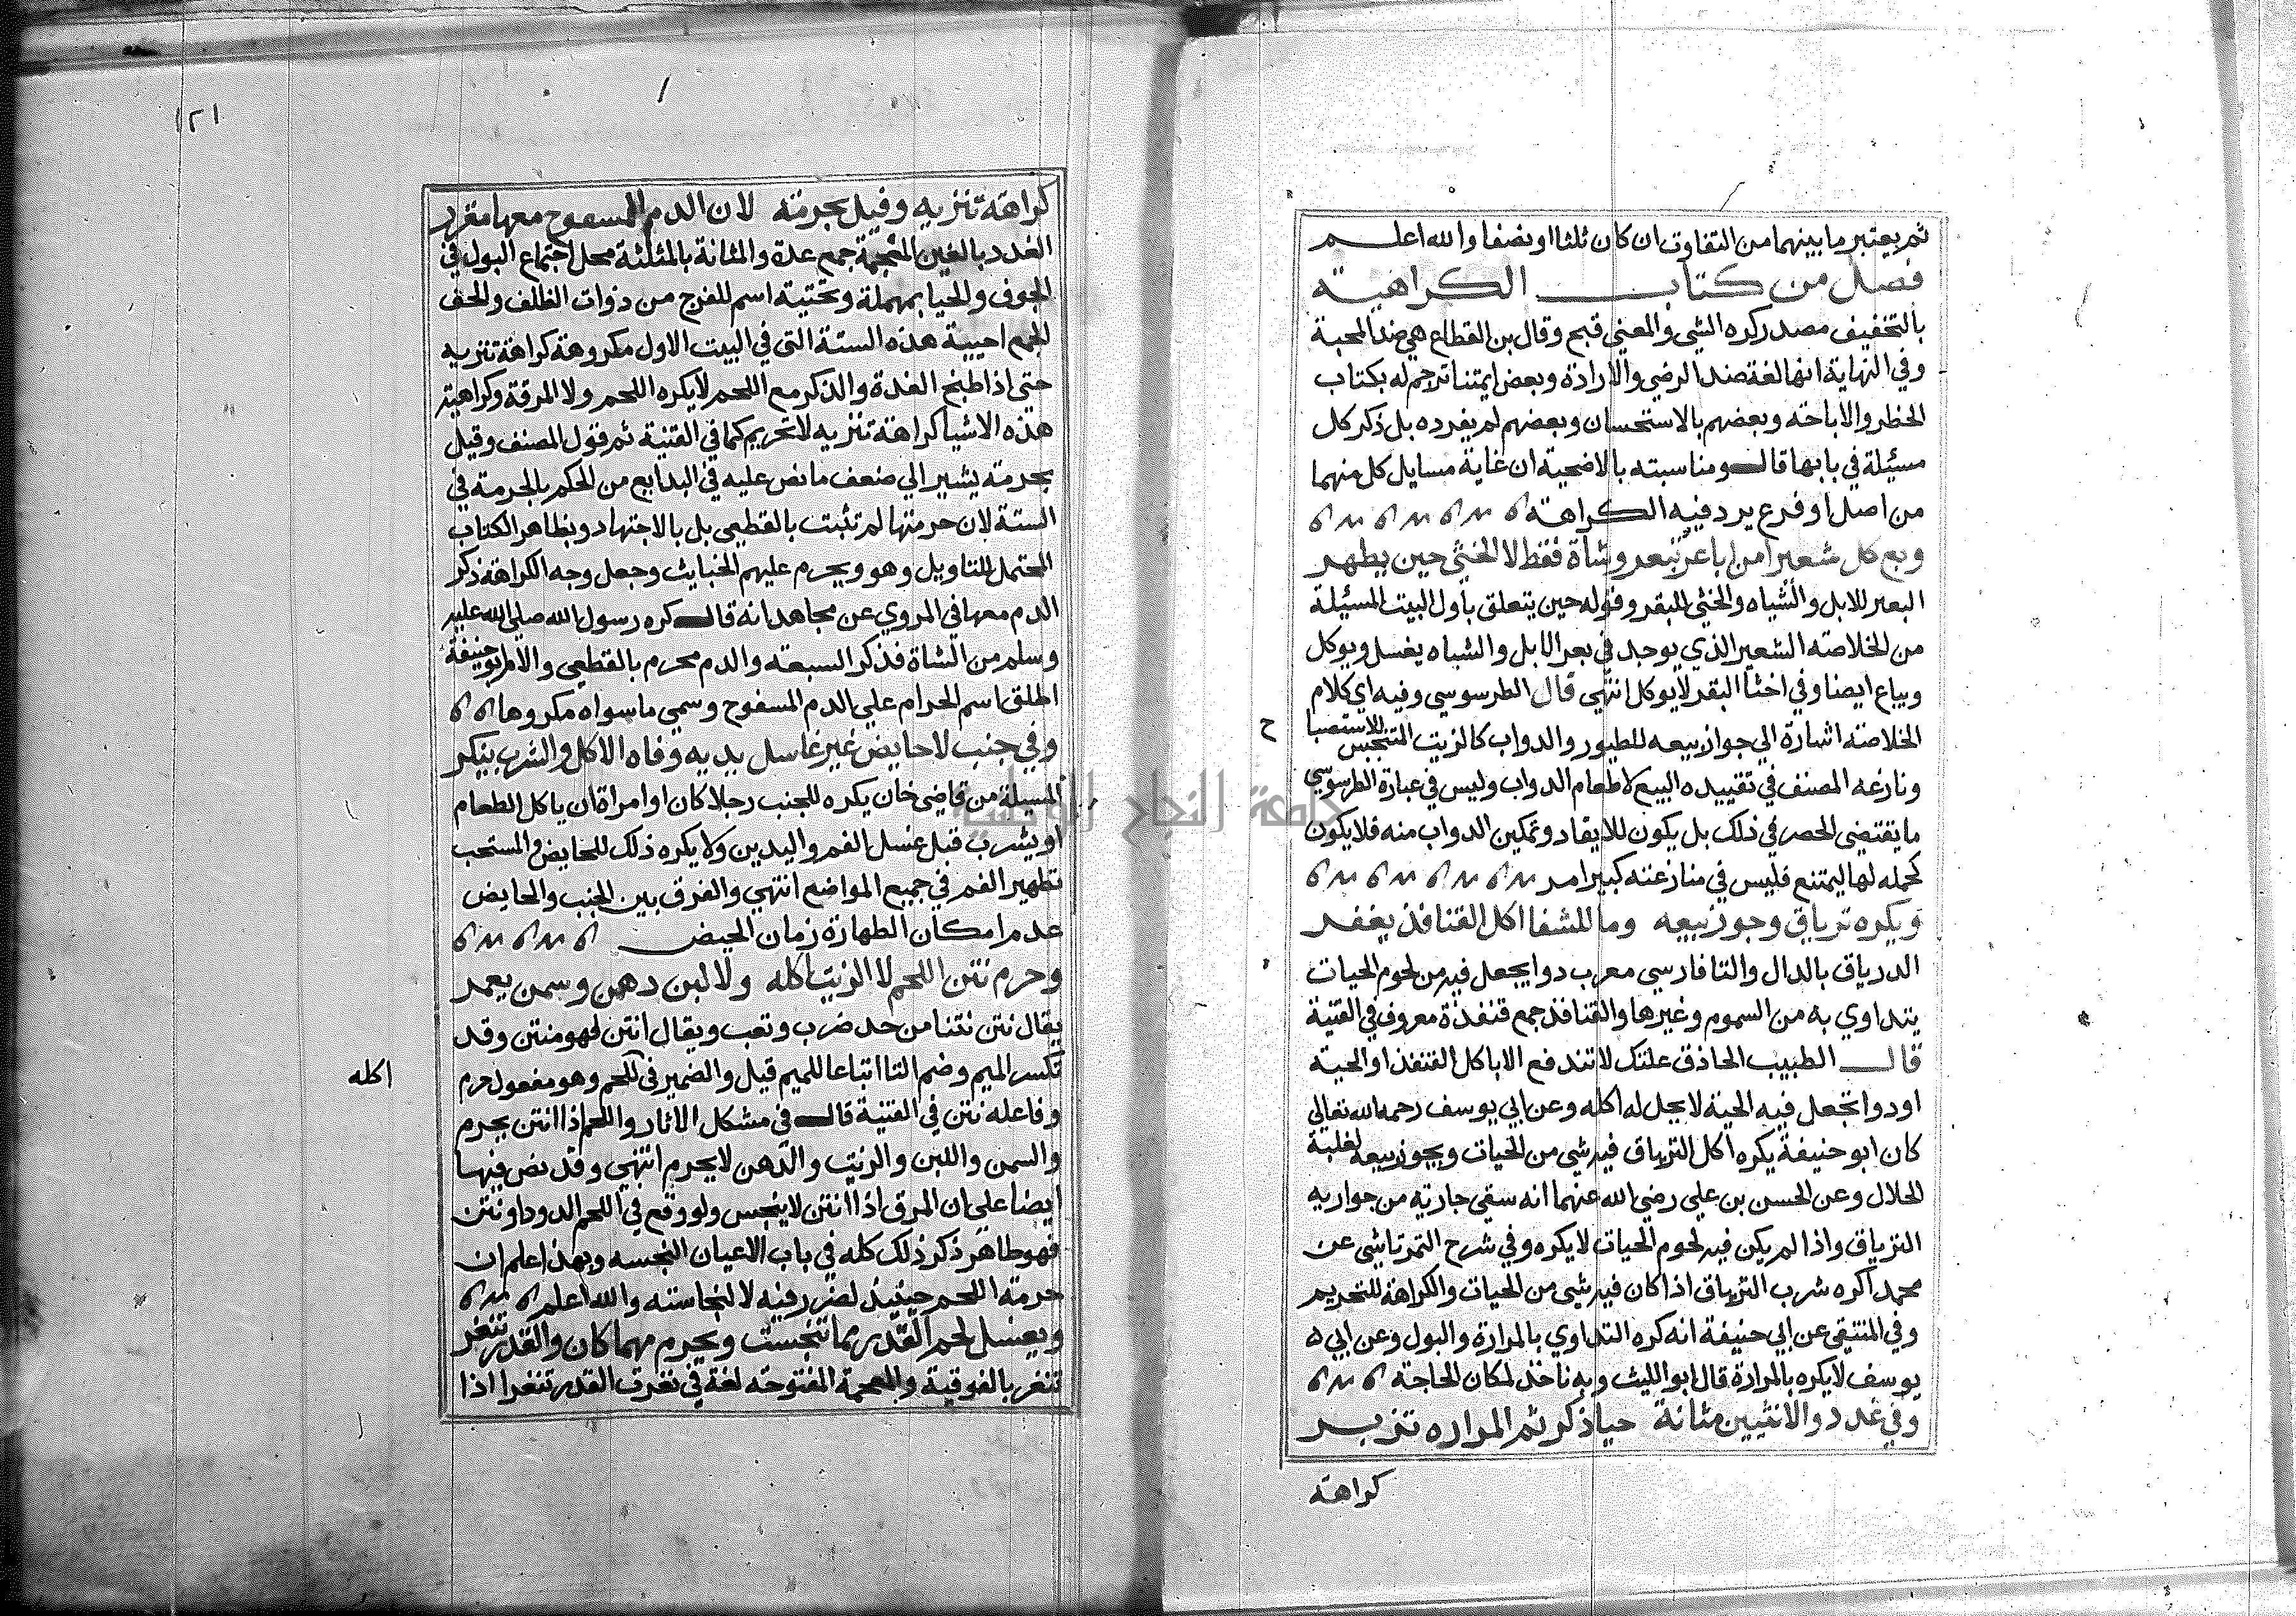 ثم يعتبر ما بينهما من التفاوت ان كان ثلثا او نصفا والله اعلم
فصل من كتاب الكراهية
بالتخفيف مصدر كره الشي والمعني قبح وقال بن القطاع هي ضد المحبة
وفي النهاية انها لغة ضد الرضي والارادة وبعض ايمتنا ترجم له بكتاب
الحظر والاباحة وبعضهم بالاستحسان وبعضهم لم يفرده بل ذكر كل
مسئيلة في بابها قال ومناسبته بالاضحية ان غاية مسايل كل منهما
من اصل او فرع يرد فيه الكراهة
وبع كل شعيرا من اباعر تبعر وشاة فقط لا الخثي حين يطهر
البعر للابل والشياه والخثي للبقر وقوله حين يتعلق باول البيت المسئيلة
من الخلاصة الشعير الذي يوجد في بعر الابل والشياه يغسل ويوكل
ويباع ايضا وفي اخثا البقر لا يوكل انتهي قال الطرسوسي وفيه اي كلام
الخلاصة اشارة الي جواز بيعه للطيور والدواب كالزيت المتنجس للاستصبا
ح
ونازعه المصنف في تقييده البيع لاطعام الدواب وليس في عبارة الطرسوسي
ما يقتضي الحصر في ذلك بل يكون للايقاد وتمكين الدواب منه فلا يكون
كحمله لها ليمتنع فليس في منازعته كبير امر
ويكره ترياق وجوز بيعه وما للشفا اكل القنافذ يغفر
الدرياق بالدال والتا فارسي معرب دوا يجعل فيه من لحوم الحيات
يتداوي به من السموم وغيرها والقنافذ جمع قنفذة معروف في القنية
قال الطبيب الحاذق علتك لا تندفع الا باكل القنفذ او الحية
او دوا تجعل فيه الحية لا يحل له اكله وعن ابي يوسف رحمه الله تعالي
كان ابو حنيفة يكره اكل الترياق فيه شي من الحيات ويجوز بيعه لغلبة
الحلال وعن الحسن بن علي رضي الله عنهما انه سقي جارية من جواريه
الترياق واذا لم يكن فيه لحوم الحيات لا يكره وفي شرح التمرتاشي عن
محمد اكره شرب الترياق اذا كان فيه شي من الحيات والكراهة للتحريم
وفي المنتقي عن ابي حنيفة انه كره التداوي بالمرارة والبول وعن ابي
يوسف لا يكره بالمرارة قال ابو الليث وبه ناخذ لمكان الحاجة
وفي غدد والانثيين مثانة حيا ذكر ثم المراره تنزر
كراهة
١٢١
كراهة تنزيه وقيل بحرمة لان الدم المسفوح معها مقرر
الغدد بالغين المعجمة جمع غدة والمثانة بالمثلثة محل اجتماع البول في
الجوف والحيا بمهملة وتحتية اسم للفرج من ذوات الظلف والخف
الجمع احيية هذه الستة التي في البيت الاول مكروهة كراهة تنزيه
حتي اذا طبخ الغدة والذكر مع اللحم لا يكره اللحم ولا المرقة وكراهية
هذه الاشيا كراهة تنزيه لا تحريم كما في القنية ثم قول المصنف وقيل
بحرمة يشير الي ضعف ما نص عليه في البدايع من الحكم بالحرمة في
الستة لان حرمتها لم تثبت بالقطعي بل بالاجتهاد وبظاهر الكتاب
المحتمل للتاويل وهو ويحرم عليهم الخبايث وجعل وجه الكراهة ذكر
الدم معها في المروي عن مجاهد انه قال كره رسول الله صلي الله عليه
وسلم من الشاة فذكر السبعة والدم محرم بالقطعي والامام ابو حنيفة
اطلق اسم الحرام علي الدم المسفوح وسمي ما سواه مكروها
وفي جنب لا حايض غير غاسل يديه وفاه الاكل والشرب ينكر
المسيلة من قاضي خان يكره للجنب رجلا كان او امراة ان ياكل الطعام
او يشرب قبل غسل الفم واليدين ولا يكره ذلك للحايض والمستحب
تطهير الفم في جميع المواضع انتهي والفرق بين الجنب والحايض
عدم امكان الطهارة زمان الحيض
وحرم نتن اللحم لا الزيت اكله ولا لبن دهن وسمن يعمر
يقال نتن نتنا من حد ضرب وتعب ويقال انتن فهو منتن وقد
تكسر الميم وضم التا اتباعا للميم قيل والضمير في للحم وهو مفعول حرم
اكله
وفاعله نتن في القنية قال في مشكل الاثار واللحم اذا انتن يحرم
والسمن واللبن والزيت والدهن لا يحرم انتهي وقد نص فيها
ايضا علي ان المرق اذا انتن لا ينجس ولو وقع في اللحم الدود او نتن
فهو طاهر ذكر ذلك كله في باب الاعيان النجسه وبهذا علم ان
حرمة اللحم حينيذ لضرر فيه لا لنجاسته والله اعلم
ويغسل لحم القدر مما تنجست ويحرم مهما كان والقدر تنغر
تنغر بالفوقية والمعجمة المفتوحة لغة في نغرت القدر تنغر اذا
جامعة النجاح الوطنية